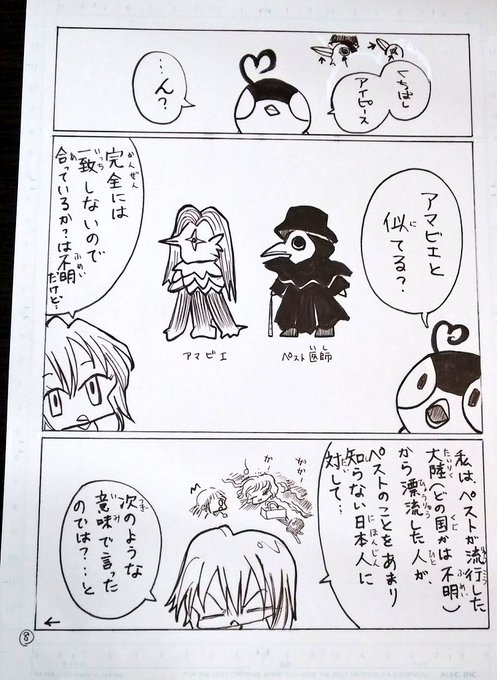 くちばし
アイピース
…ん?
アマビエと
似てる?
ペスト医師
アマビエ
完全には
一致しないので
合っているか?は不明
だけど…
私は、ペストが流行した
大陸(どの国かは不明)
から漂流した人が、
ペストのことをあまり
知らない日本人に
対して…
次のような
意味で言った
のでは?…と
←
8
FOR THE BEST CREATIVE WORK YOU NEED THE BEST MATERIALS & EQUIPMENT